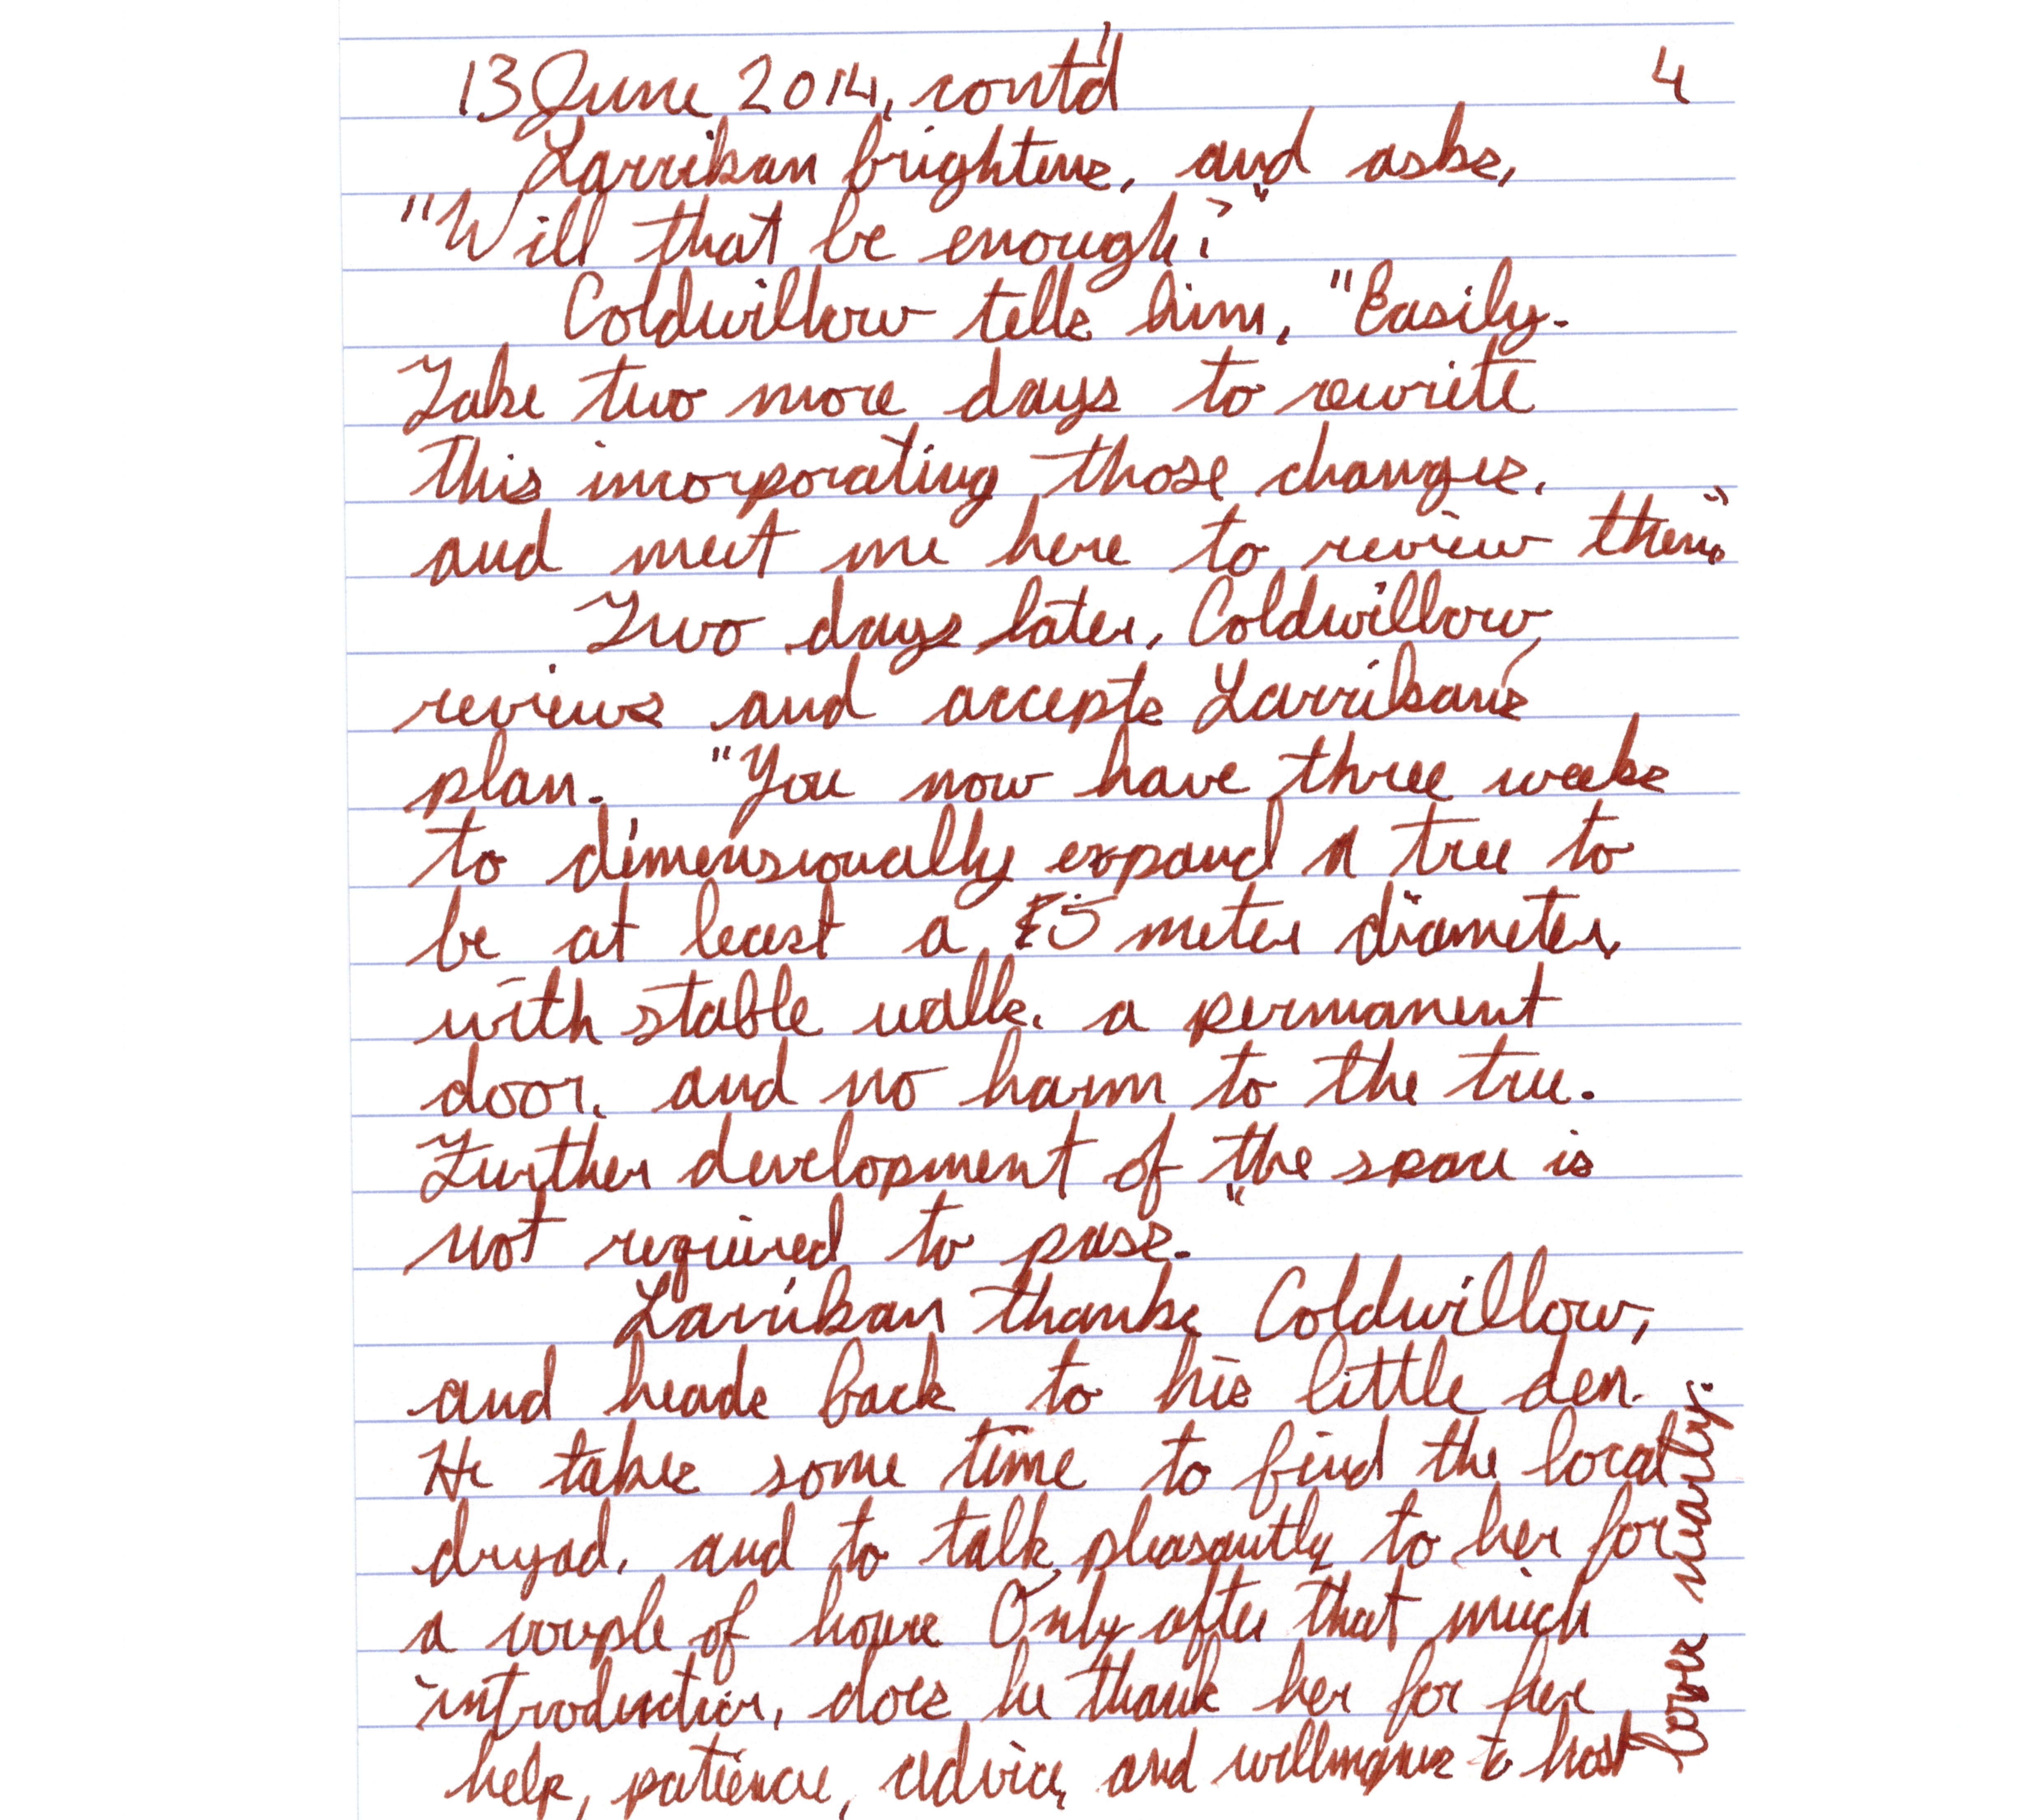 13 June 2014, cont'd 4
Larrikan brightens, and asks,
"Will that be enough?"
Coldwillow tells him, "Easily.
Take two more days to rewrite
this incorporating those changes,
and meet me here to review them."
Two days later, Coldwillow
reviews and accepts Larrikan's
plan. "You now have three weeks
to dimensionally expand a tree to
be at least a 5 meter diameter,
with stable walls, a permanent
door, and no harm to the tree.
Further development of the space is
not required to pass."
Larrikan thanks Coldwillow,
and heads back to his little den.
He takes some time to find the local
dryad, and to talk pleasantly to her for
a couple of hours Only after that much
introduction, does he thank her for her
help, patience, advice, and willingness to host
lover nearly.